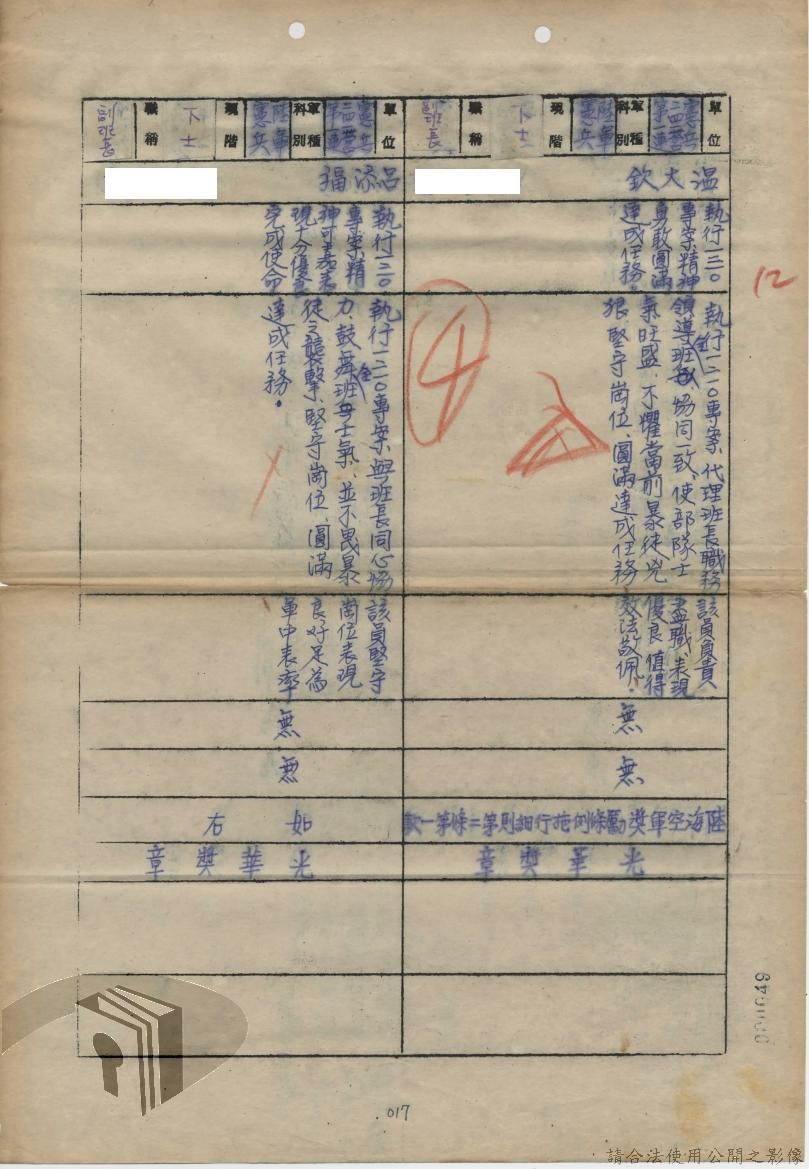 單位
憲兵
二四營
第一連
軍種
科別
陸軍
憲兵
現階
下士
職稱
副班長
溫大欽
執行一二〇
專案精神
勇敢圓滿
達成任務。
執行一二〇專案、代理班長職務
領導班全員協同一致、使部隊士
氣旺盛、不懼當前暴徒兇
狠堅守崗位、圓滿達成任務
該員負責
盡職、表現
優良值得
效法敬佩。
無
無
陸海空軍獎勵條例施行細則第二條第一款
光華獎章
單位
憲兵
二四營
第一連
軍種
科別
陸軍
憲兵
現階
下士
職稱
副班長
呂添福
執行一二〇
專案、精
神可嘉表
現十分優良
完成使命
執行一二〇專案、與班長同心協
力、鼓舞班全員士氣、並不畏暴
徒之襲擊、堅守崗位、圓滿
達成任務。
該員堅守
崗位表現
良好足為
軍中表率
無
無
如右
光華獎章
12
4
000049
017
請合法使用公開之影像